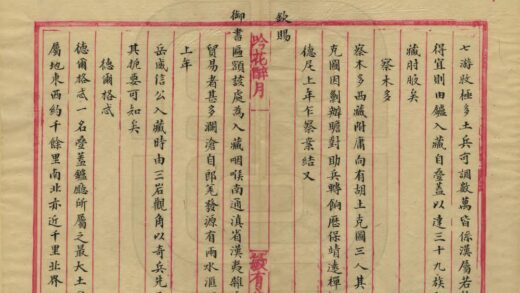 七游數極多土兵可調數萬皆係漢屬若
得宜則由鑪入藏自疊蓋以達三十九族
藏肘腋矣
察木多
察木多西藏附庸向有胡土克圖三人其
克圖因剿辦瞻對助兵轉餉歷保靖遠禪
德尼上年乍察案結又
欽賜
吟花醉月
御書匾額該處為入藏咽喉南通滇省漢夷雜
貿易者甚多瀾滄自郎發源有兩水滙
上年
岳威信公入藏時由三岩觀角以奇兵先
其扼要可知矣
德爾格忒
德爾格忒一名疊蓋鑪廳所屬之最大土
屬地東西約千餘里南北亦近千里北界